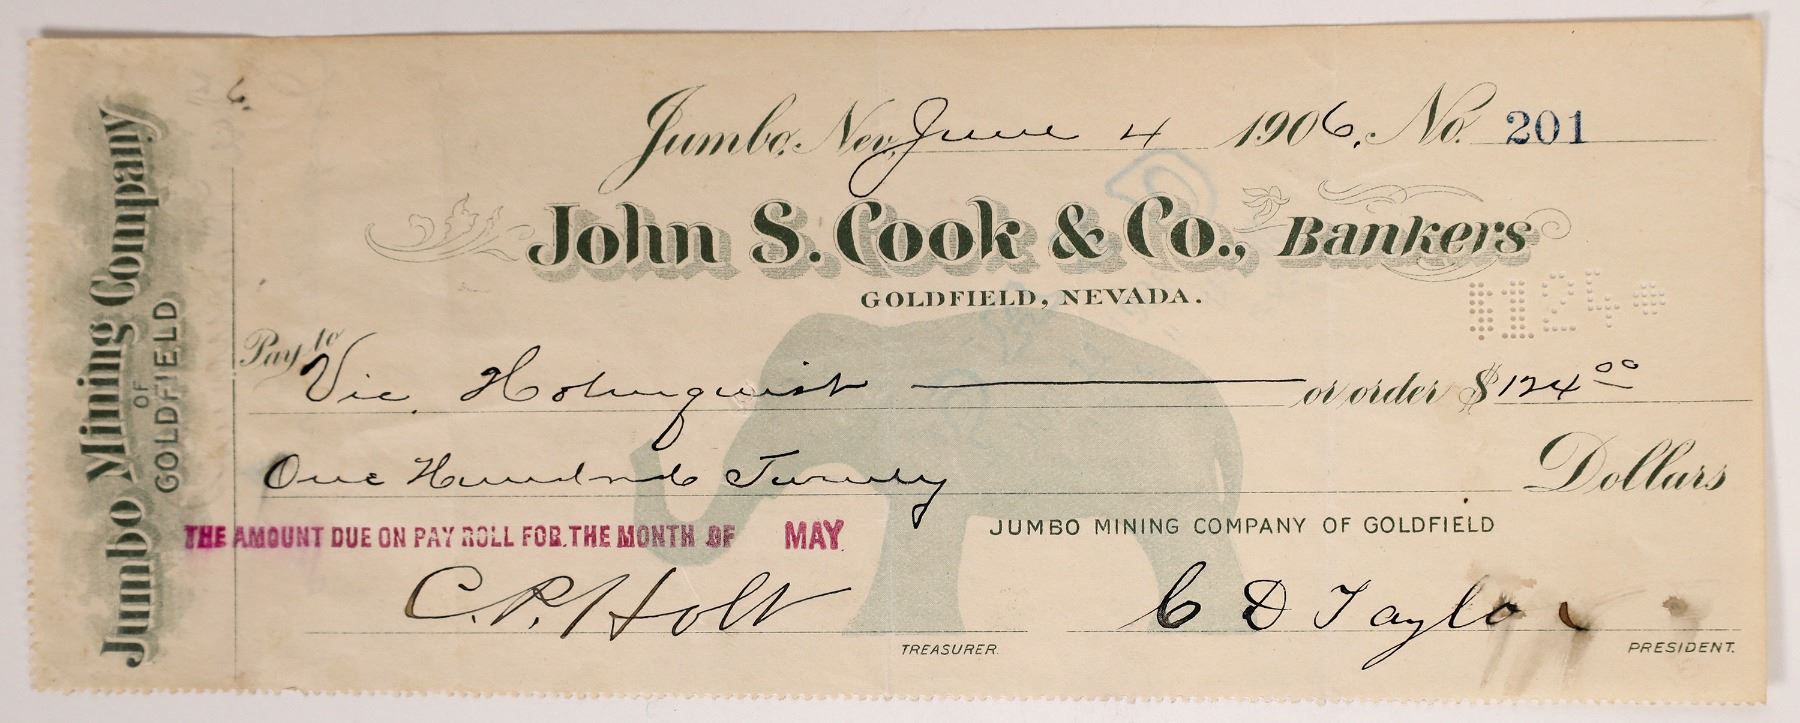 Jumbo Mining Company
OF
GOLDFIELD
Jumbo, Nev, June 4 1906. No. 201
John S. Cook & Co., Bankers
GOLDFIELD, NEVADA.
$124
Pay to Vic. Holmquist or order $124 00
One Hundred Twenty Dollars
THE AMOUNT DUE ON PAY ROLL FOR THE MONTH OF MAY
JUMBO MINING COMPANY OF GOLDFIELD
C. P. Holt C D Taylor
TREASURER. PRESIDENT.